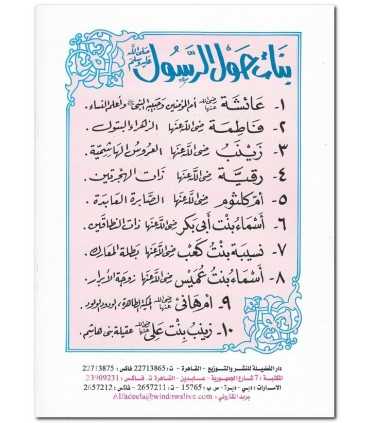 بنات حول الرسول صلى الله عليه وسلم
١- عائشة رضي الله عنها أم المؤمنين وحبيبة النبي ﷺ وأعلم النساء.
٢- فاطمة رضي الله عنها الزهراء البتول.
٣- زينب رضي الله عنها العروس الهاشمية.
٤- رقية رضي الله عنها ذات الهجرتين.
٥- أم كلثوم رضي الله عنها الصابرة العابدة.
٦- أسماء بنت أبي بكر رضي الله عنها ذات النطاقين.
٧- نسيبة بنت كعب رضي الله عنها بطلة المعارك.
٨- أسماء بنت عميس رضي الله عنها زوجة الأبرار.
٩- أم هانئ رضي الله عنها
١٠- زينب بنت علي رضي الله عنها عقيلة بني هاشم.
دار الفضيلة للنشر والتوزيع - القاهرة - ت: 22713865 فاكس: 22713875
المكتبة: 7 شارع الجمهورية - عابدين - القاهرة ت. فاكس: 23909231
الامارات: دبي - ديرة - ص. ب: 15765 - ت: 2657211 - فاكس: 2657212
بريد الكتروني: Alfadeela@windowslive.com